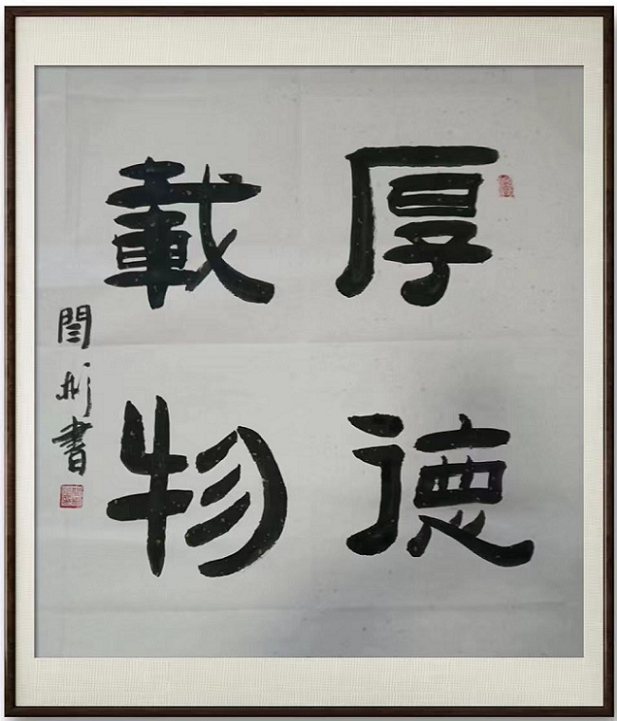 厚德
載物
閆彬書